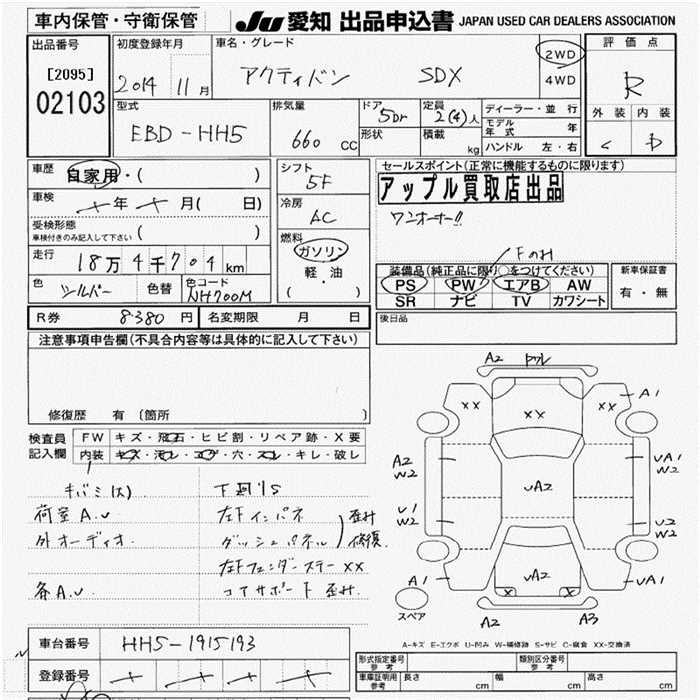 車内保管・守衛保管 JU 愛知 出品申込書 JAPAN USED CAR DEALERS ASSOCIATION
出品番号 初度登録年月 車名・グレード 評価点
[2095] 2014 11月 アクティバン SDX 2WD 4WD R
02103
型式 排気量 ドア 定員 ディーラー・並行 外装 内装
EBD-HH5 660 CC 5Dr 2(4)人 モデル年式 年 C D
形状 積載 kg ハンドル 左・右
車歴 自家用・( ) シフト セールスポイント(正常に機能するものに限ります)
5F アップル買取店出品
車検 年 月( 日) 冷房 ワンオーナー!!
受検形態 AC
車検付きのみ記入して下さい ( )
走行 18万4千704km 燃料 ガソリン Fのみ
軽・油 装備品(純正品に限り○をつけてください) 新車保証書
色 シルバー 色替 色コード NH700M ( ) PS PW エアB AW 有・無
SR ナビ TV カワシート
R券 8380円 名変期限 月 日 後日品
注意事項申告欄(不具合内容等は具体的に記入して下さい)
修復歴 有 〔箇所 〕
検査員記入欄 FW キズ・飛石・ヒビ割・リペア跡・X要
内装 キズ・汚レ・コゲ・穴・スレ・キレ・破レ
キバミ(大) 下回りS
荷室A.U 左Fインパネ
外オーディオ ダッシュパネル 歪み修復
左Fフェンダーステー XX
各A.U コアサポート 歪み
A2 ワレ
XX XX XX A1
A2 W2 UA2 UA1 W2
U1 W2 U2 W2
A1 UA2 X X UA1
スペア A2 A3
A-キズ E-エクボ U-凹み W-補修跡 S-サビ C-腐食 XX-交換済
車台番号 HH5-1915193
登録番号
形式指定番号 参考 類別区分番号 参考
車庫証明用 参考 長さ cm 幅 cm 高さ cm